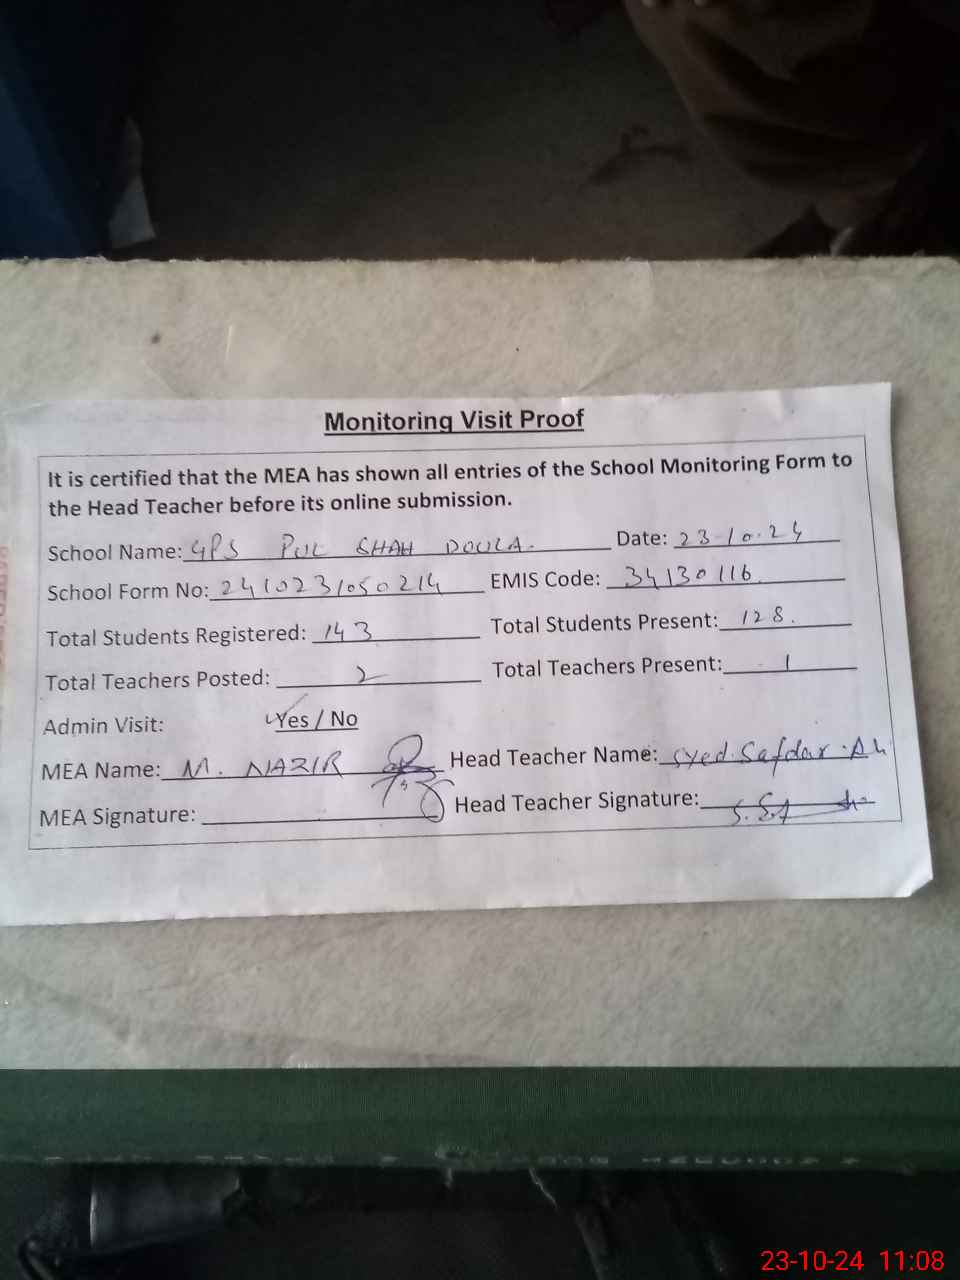 Monitoring Visit Proof
It is certified that the MEA has shown all entries of the School Monitoring Form to
the Head Teacher before its online submission.
School Name: GPS PUL SHAH DOULA. Date: 23-10-24
School Form No: 2410231050214 EMIS Code: 34130116
Total Students Registered: 143 Total Students Present: 128.
Total Teachers Posted: 2 Total Teachers Present: 1
Admin Visit: Yes / No
MEA Name: M. NAZIR Head Teacher Name: Syed Safdar Ali
MEA Signature: Head Teacher Signature:
23-10-24 11:08